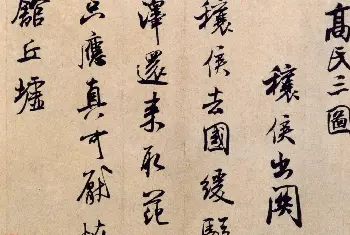 髙氏三圖
穰侯出関
穰侯去國緩
澤還来取范
只應真可厭
舘丘墟